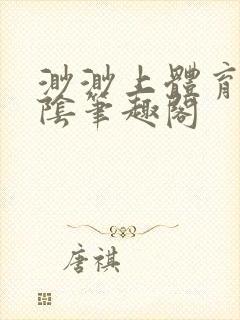 渺渺上體育
陰筆趣閣
唐祺